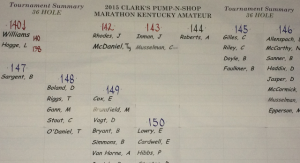 Tournament Summary
36 HOLE
2015 CLARK'S PUMP-N-SHOP
MARATHON KENTUCKY AMATEUR
Tournament Summary
36 HOLE
140
Williams 140
Hogge, L
147
Sargent, B
148
Boland, D
Riggs, T
Gunn, M
Stout, C
O'Daniel, T
142
Rhodes, J
McDaniel, T
149
Cox, E
Vogt, D
Bryant, B
Simmons, B
Van Horne, A
143
Inman, J
Musselman, C
150
Lowry, E
Cardwell, E
Hibbs, P
144
Roberts, A
145
Gilles, C
Riley, C
Doyle, B
Faulkner, B
146
Allenspach,
McCarthy,
Sanner, B
Haddix, D
Jasper, D
McCormick,
Musselman,
Epperson, M